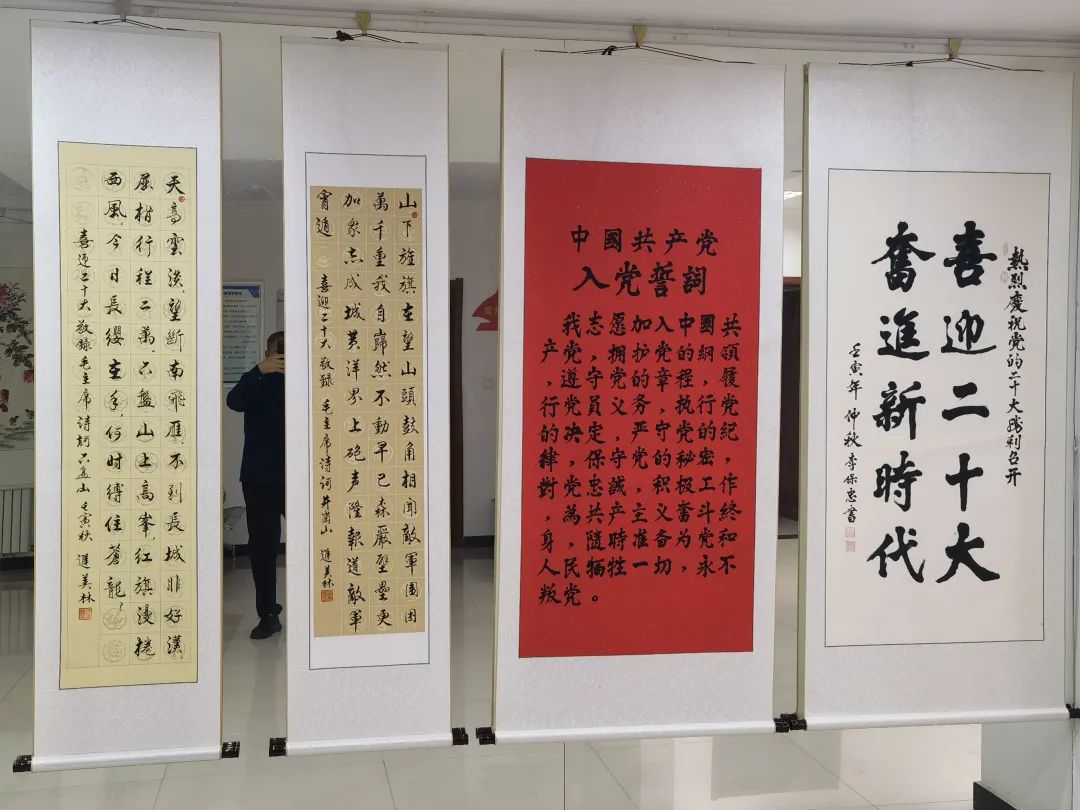 天高雲淡望斷南飛雁不到長城非好漢
屈指行程二萬六盤山上高峯紅旗漫捲
西風今日長纓在手何时縛住蒼龍
喜迎二十大敬錄毛主席詩詞六盘山 壬寅秋 進美林
山下旌旗在望山頭鼓角相聞敵軍圍困
萬千重我自巋然不動早已森嚴壁壘更
加衆志成城黄洋界上砲声隆報道敵軍
宵遁 喜迎二十大敬錄毛主席詩词井崗山 進美林
中國共产党
入党誓詞
我志愿加入中國共
产党，拥护党的綱領
，遵守党的章程，履
行党員义务，执行党
的决定，严守党的紀
律，保守党的秘密，
對党忠誠，积极工作
，为共产主义奋斗終
身，隨時准备为党和
人民犧牲一切，永不
叛党。
熱烈慶祝党的二十大勝利召开
喜迎二十大
奮進新時代
壬寅年仲秋李保忠書